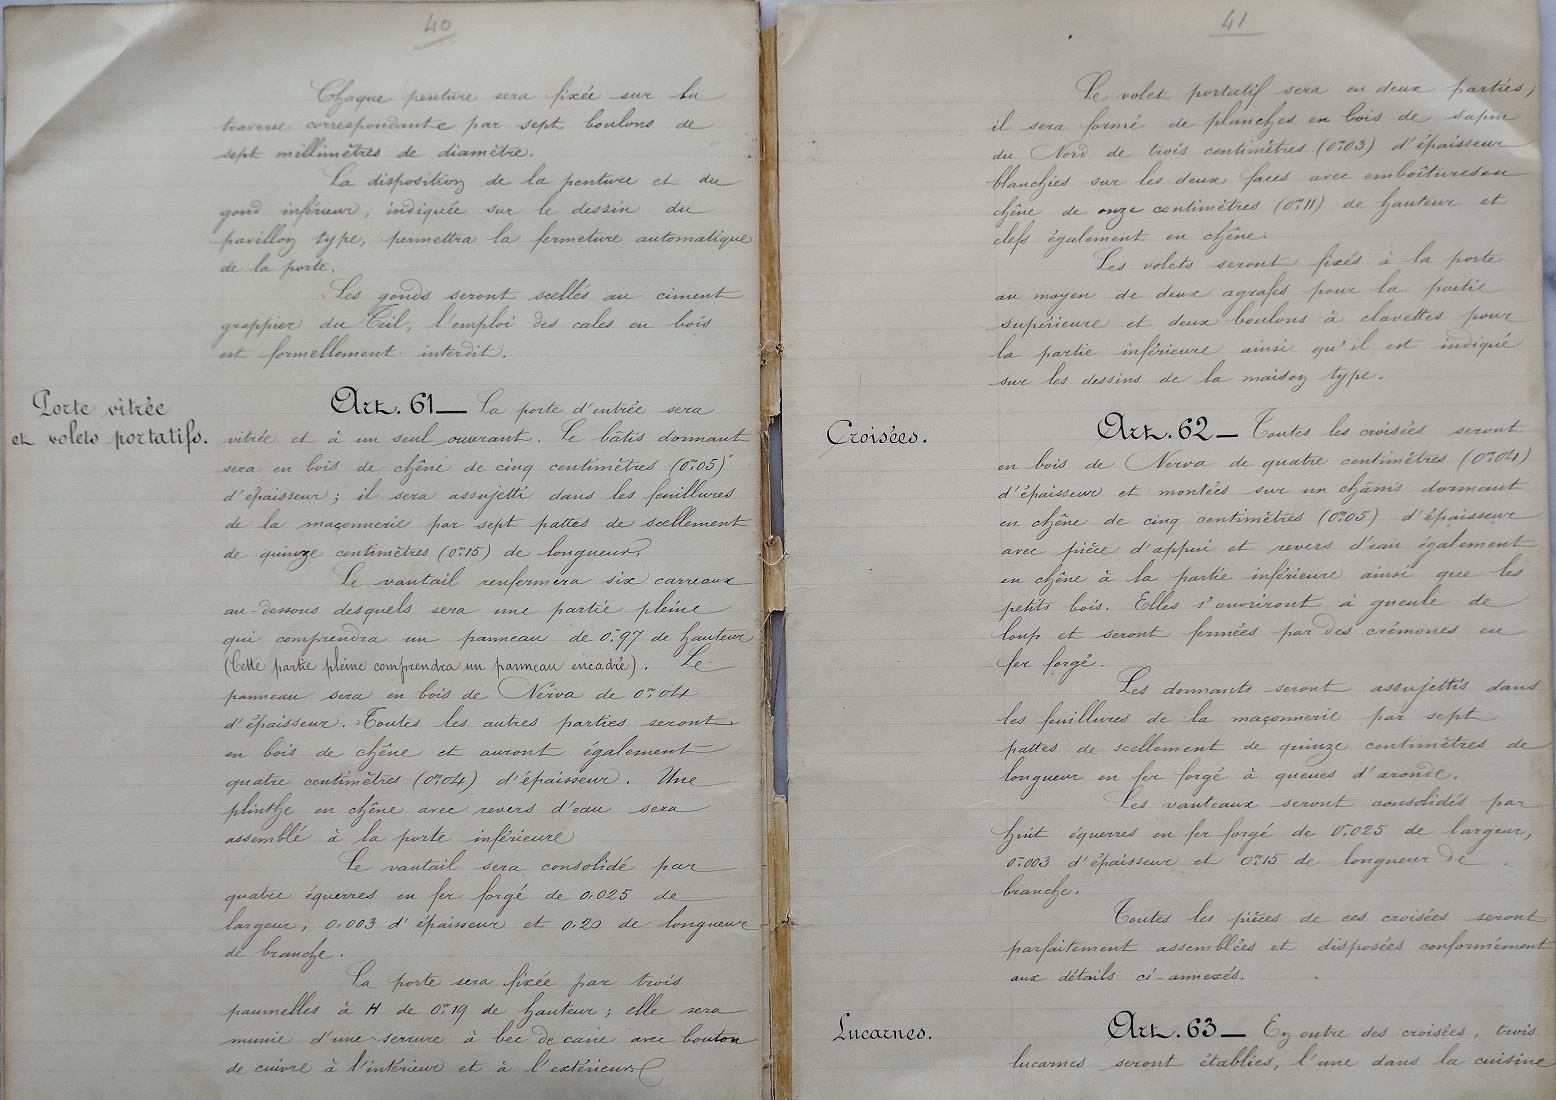 40
Chaque penture sera fixée sur la
traverse correspondante par sept boulons de
sept millimètres de diamètre.
La disposition de la penture et du
gond inférieur, indiquée sur le dessin du
pavillon type, permettra la fermeture automatique
de la porte.
Les gonds seront scellés au ciment
grappier du Teil, l'emploi des cales en bois
est formellement interdit.
Porte vitrée
et volets portatifs.
Art. 61 — La porte d'entrée sera
vitrée et à un seul ouvrant. Le bâtis dormant
sera en bois de chêne de cinq centimètres (0m05)
d'épaisseur; il sera assujetti dans les feuillures
de la maçonnerie par sept pattes de scellement
de quinze centimètres (0m15) de longueur.
Le vantail renfermera six carreaux
au-dessous desquels sera une partie pleine
qui comprendra un panneau de 0m97 de hauteur
(Cette partie pleine comprendra un panneau encadré). Le
panneau sera en bois de Nerva de 0m04
d'épaisseur. Toutes les autres parties seront
en bois de chêne et auront également
quatre centimètres (0m04) d'épaisseur. Une
plinthe en chêne avec revers d'eau sera
assemblé à la porte inférieure
Le vantail sera consolidé par
quatre équerres en fer forgé de 0.025 de
largeur, 0.003 d'épaisseur et 0.20 de longueur
de branche.
La porte sera fixée par trois
paumelles à H de 0m19 de hauteur; elle sera
munie d'une serrure à bec de cane avec bouton
de cuivre à l'intérieur et à l'extérieur.
41
Le volet portatif sera en deux parties,
il sera formé de planches en bois de sapin
du Nord de trois centimètres (0m03) d'épaisseur
blanchies sur les deux faces avec emboîtures en
chêne de onze centimètres (0m11) de hauteur et
clefs également en chêne.
Les volets seront fixés à la porte
au moyen de deux agrafes pour la partie
supérieure et deux boulons à clavettes pour
la partie inférieure ainsi qu'il est indiqué
sur les dessins de la maison type.
Croisées.
Art. 62 — Toutes les croisées seront
en bois de Nerva de quatre centimètres (0m04)
d'épaisseur et montées sur un châssis dormant
en chêne de cinq centimètres (0m05) d'épaisseur
avec pièce d'appui et revers d'eau également
en chêne à la partie inférieure ainsi que les
petits bois. Elles s'ouvriront à gueule de
loup et seront fermées par des crémones en
fer forgé.
Les dormants seront assujettis dans
les feuillures de la maçonnerie par sept
pattes de scellement de quinze centimètres de
longueur en fer forgé à queues d'aronde.
Les vanteaux seront consolidés par
huit équerres en fer forgé de 0m025 de largeur,
0m003 d'épaisseur et 0m15 de longueur de
branche.
Toutes les pièces de ces croisées seront
parfaitement assemblées et disposées conformément
aux détails ci-annexés.
Lucarnes.
Art. 63 — En outre des croisées, trois
lucarnes seront établies, l'une dans la cuisine